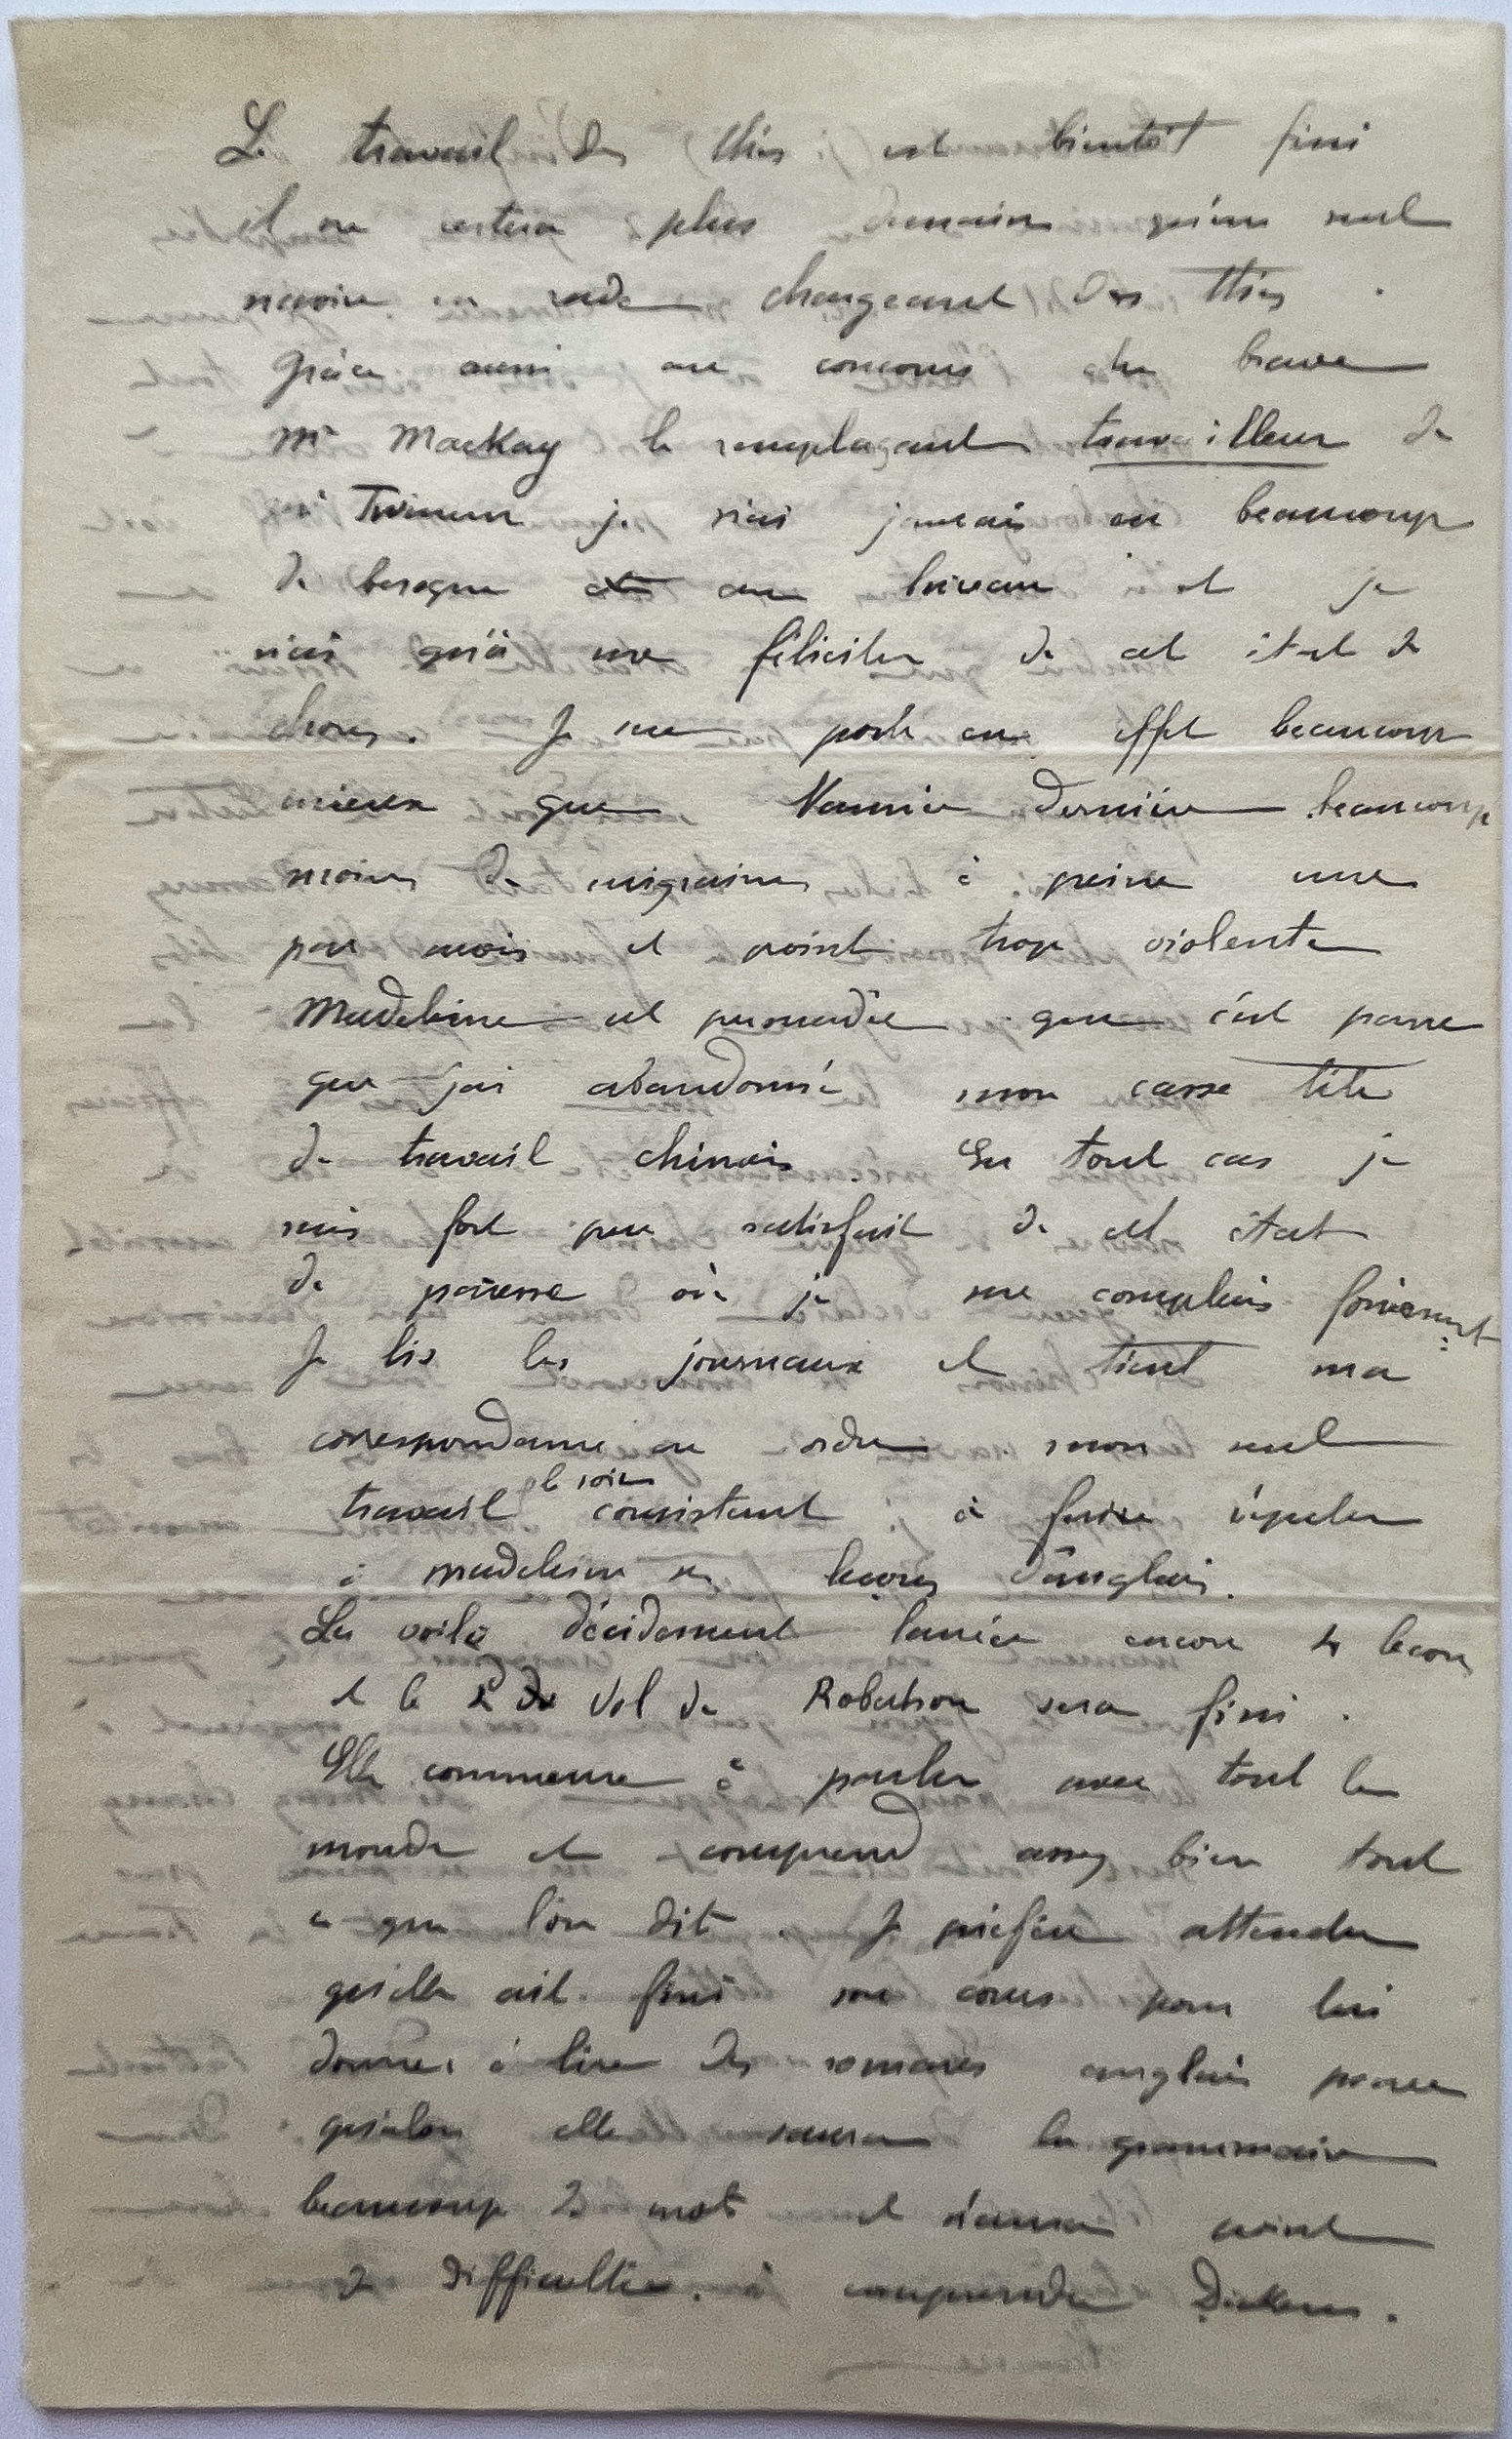 Le travail des thés est bientôt fini
et ne restera plus demain qu'un seul
navire en rade chargeant des thés.
Grâce aussi au concours du brave
Mr MacKay le remplaçant travailleur de
Mr Twinem je n'ai jamais eu beaucoup
de besogne au bureau et je
n'ai qu'à me féliciter de cet état de
choses. Je me porte en effet beaucoup
mieux que l'année dernière beaucoup
moins de migraines à peine une
par mois et point trop violente
Madeleine est persuadée que c'est parce
que j'ai abandonné mon casse tête
de travail chinois. En tout cas je
suis fort peu satisfait de cet état
de paresse où je me complais forcément
Je lis les journaux et tient ma
correspondance en ordre mon seul
travail le soir consistant à faire répéter
à Madeleine ses leçons d'anglais.
La voila décidement lancée encore 4 leçons
et le 2d Vol de Robertson sera fini.
Elle commence à parler avec tout le
monde et comprend assez bien tout
ce que l'on dit. Je préfère attendre
qu'elle ait fini son cours pour lui
donner à lire des romans anglais parce
qu'alors elle saura la grammaire
beaucoup de mots et n'aura point
de difficultés à comprendre Dickens.